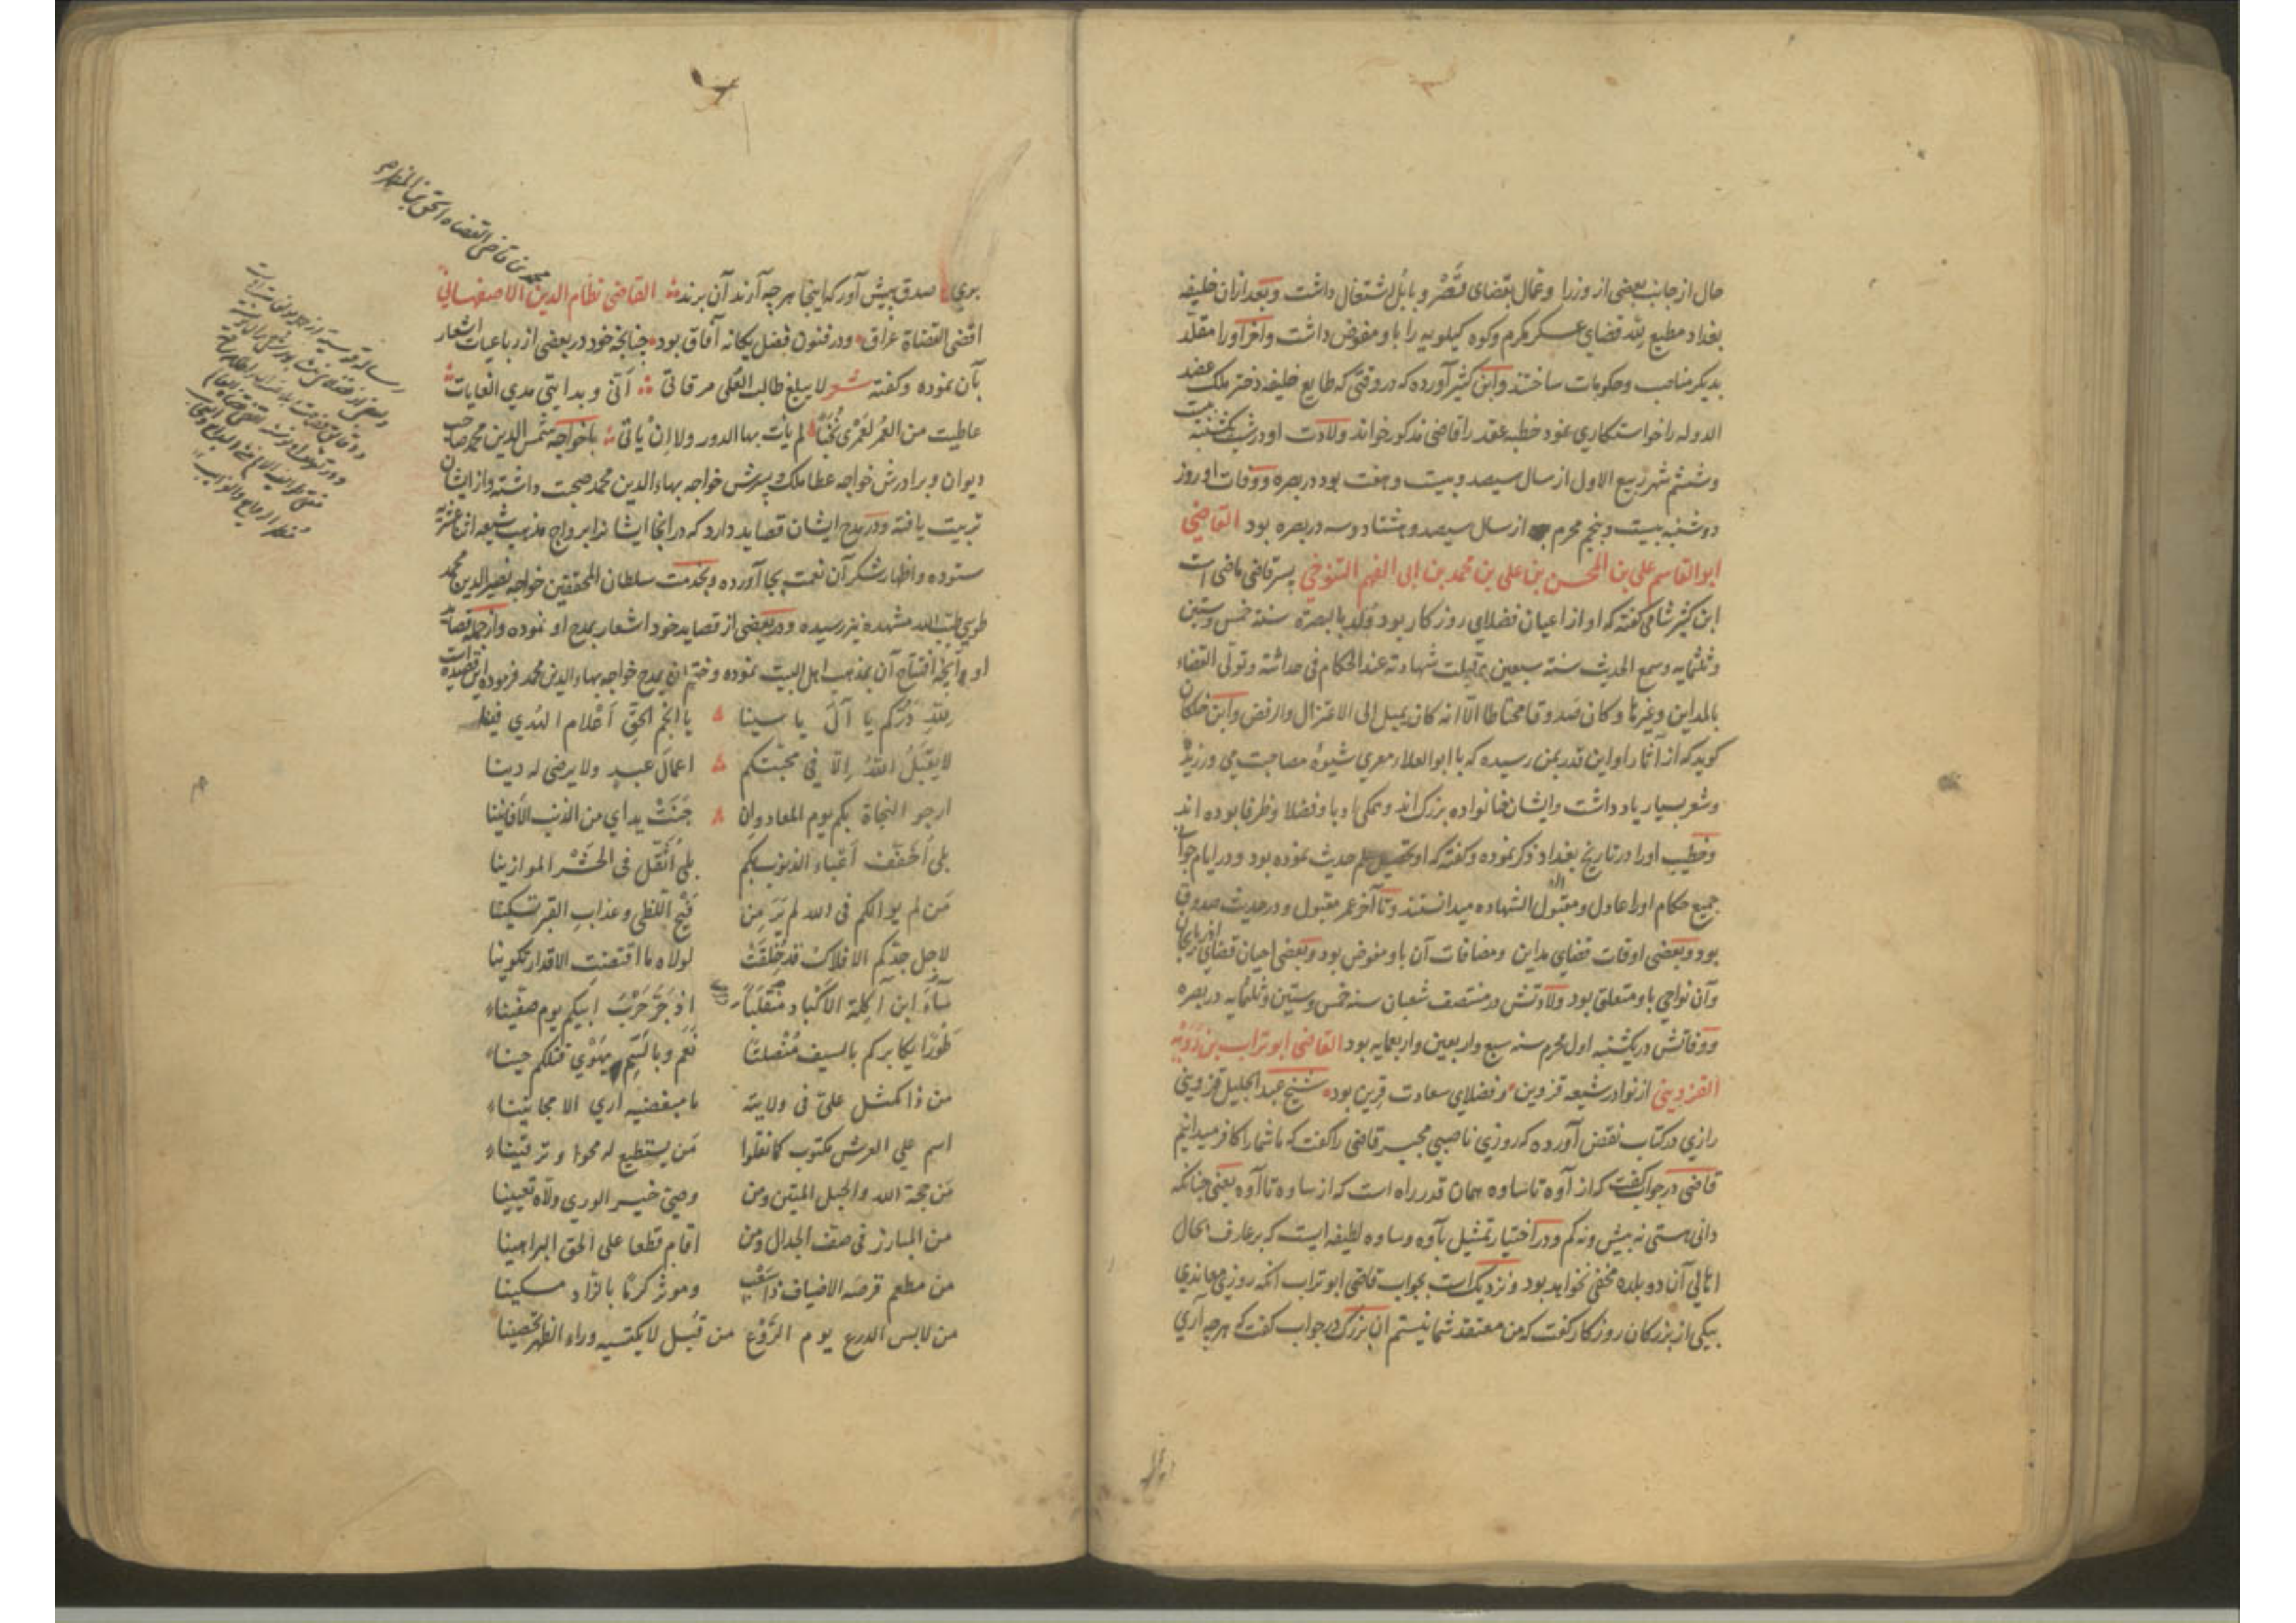 حال از جانب بعضی از وزرا و عمال بقضای قصر و بابل اشتغال داشت و بعد ازان خلیفه
بغداد مطیع لله قضای عسکر مکرم وکوه کیلویه را باو مفوض داشت وآخر اورا مقلد
بدیکر مناصب وحکومات ساختند وابن کثیر آورده که در وقتی که طایع خلیفه دختر ملک عضد
الدوله را خواستکاری نمود خطبه عقد را قاضی مذکور خواند ولادت او در شب یکشنبه بیست
وششم شهر ربیع الاول از سال سیصد وبیست وهفت بود در بصره ووفات او روز
دوشنبه بیست وپنجم محرم از سال سیصد وهشتاد وسه در بصره بود القاضی
ابو القاسم علی بن المحسن بن علی بن محمد بن ابی الفهم التنوخی پسر قاضی ماضی است
ابن کثیر شامی کفته که او از اعیان فضلای روزکار بود ولد بالبصرة سنة خمس وستین
وثلثمایه وسمع الحدیث سنة سبعین وقبلت شهادته عند الحکام فی حداثته وتولی القضاء
بالمداین وغیرها وکان صدوقا محتاطا الا انه کان یمیل الی الاعتزال والرفض وابن خلکان
کوید که از آثار او این قدر بمن رسیده که با ابو العلاء معری شیوه مصاحبت می ورزید
وشعر بسیار یاد داشت وایشان خانواده بزرک اند وهمکی ادبا وفضلا وظرفا بوده اند
وخطیب اورا در تاریخ بغداد ذکر نموده وکفته که او تحصیل علم حدیث نموده بود ودر ایام جوانی
جمیع حکام اورا عادل ومقبول الشهاده میدانستند وتا آخر عمر مقبول ودر حدیث صدوق
بود وبعضی اوقات قضای مداین ومضافات آن باو مفوض بود وبعضی احیان قضای اذربایجان
وآن نواحی باو متعلق بود ولادتش در منتصف شعبان سنه خمس وستین وثلثمایه در بصره
ووفاتش در یکشنبه اول محرم سنه سبع واربعین واربعمایه بود القاضی ابو تراب بن
القزوینی از نوادر شیعه قزوین وفضلای سعادت قرین بود شیخ عبد الجلیل قزوینی
رازی در کتاب نقض آورده که روزی ناصبی مجبر قاضی را کفت که ما شما را کافر میدانیم
قاضی در جواب کفت که از آوه تا ساوه همان قدر راه است که از ساوه تا آوه یعنی چنانکه
دانی هستی نه بیش ونه کم ودر اختیار تمثیل بآوه وساوه لطیفه ایست که بر عارف بحال
اهالی آن دو بلده مخفی نخواهد بود ونزدیک است بجواب قاضی ابو تراب انکه روزی معاندی
بیکی از بزرکان روزکار کفت که من معتقد شما نیستم ان بزرک در جواب کفت که هرچه آری
بری صدق پیش آور که اینجا هرچه آرند آن برند القاضی نظام الدین الاصفهانی
محمد بن قاضی القضاه اسحق بن المظهر
اقضی القضاة عراق ودر فنون فضل یکانه آفاق بود چنانچه خود در بعضی از رباعیات اشعار
بآن نموده وکفته شعر لا یبلغ طالب العلی مرقاتی آتی وبدایتی مدی الغایات
عاطیت من العمر لعمری نخبا لم یأت بها الدور ولا ان یأتی باخواجه شمس الدین محمد صاحب
دیوان وبرادرش خواجه عطا ملک وپسرش خواجه بهاء الدین محمد صحبت داشته واز ایشان
تربیت یافته ودر مدح ایشان قصاید دارد که در انجا ایشانرا بر رواج مذهب شیعه اثنا عشریه
ستوده واظهار شکر آن نعمت بجا آورده وبخدمت سلطان المحققین خواجه نصیر الدین محمد
طوسی طیب الله مشهده نیز رسیده ودر بعضی از قصاید خود اشعار بمدح او نموده واز جمله قصاید
او آنچه افتتاح آن بمذهب اهل البیت نموده وختم ان بمدح خواجه بهاء الدین محمد فرموده این قصیده است
لله درکم یا آل یاسینا یا انجم الحق اعلام الهدی فینا
لا یقبل الله الا فی محبتکم اعمال عبد ولا یرضی له دینا
ارجو النجاة بکم یوم المعاد وان جنت یدای من الذنب الافانینا
بلی اخفف اعباء الذنوب بکم بلی اثقل فی الحشر الموازینا
من لم یوالکم فی الله لم یر من قیح اللظی وعذاب القبر تسکینا
لاجل جدکم الافلاک قد خلقت لولاه ما اقتضت الاقدار تکوینا
ابن آکلة الاکباد منقلبا اذ جر حرب ابیکم یوم صفینا
طورا یکابرکم بالسیف منصلتا نعم وبالسم یهوی قتلکم حینا
من ذا کمثل علی فی ولایته ما مبغضیه اری الا مجانینا
اسم علی العرش مکتوب کما نقلوا من یستطیع له محوا وترقینا
من حجة الله والحبل المتین ومن وصی خیر الوری ولاه تعیینا
من المبارز فی صف الجدال ومن اقام قطعا علی الحق البراهینا
من مطعم قرصه الاضیاف ذا سغب وموثر کرما بالزاد مسکینا
من لابس الدرع یوم الروع من قبل لا یکتسیه وراء الظهر تحصینا